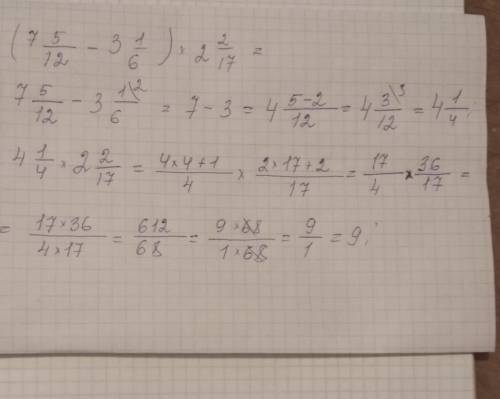 (7 5/12 - 3 1/6) × 2 2/17 =
7 5/12 - 3 1\2/6 = 7 - 3 = 4 5-2/12 = 4 3\3/12 = 4 1/4;
4 1/4 × 2 2/17 = 4×4+1/4 × 2×17+2/17 = 17/4 × 36/17 =
= 17×36/4×17 = 612/68 = 9×68/1×68 = 9/1 = 9;